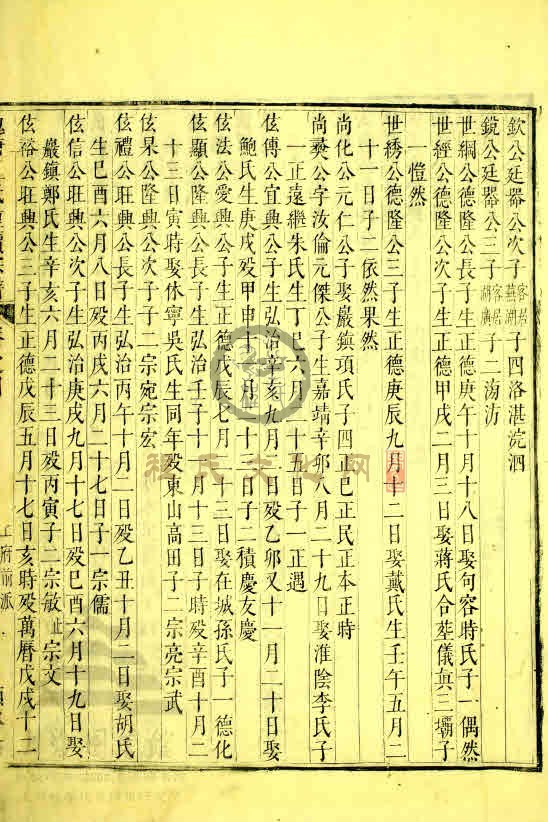 欽公廷器公次子客居蕪湖子四洛湛浣泗
鏡公廷器公三子客居湖廣子二汤汸
世綱公德隆公長子生正德庚午十月十八日娶句容時氏子一偶然
世經公德隆公次子生正德甲戌二月三日娶蔣氏合塟儀真三壩子
一愷然
世綉公德隆公三子生正德庚辰九月十二日娶戴氏生壬午五月二
十一日子二依然果然
尚化公元仁公子娶巖鎮項氏子四正巳正民正本正時
尚彞公字汝倫元傑公子生嘉靖辛卯八月二十九日娶淮陰李氏子
一正遠繼朱氏生丁巳六月二十五日子一正遇
伭傳公宜興公子生弘治辛亥九月二日殁乙卯又十一月二十日娶
鮑氏生庚戌殁甲申十一月二十三日子二積慶友慶
伭法公愛興公子生正德戊辰七月二十三日娶在城孫氏子一德化
伭顯公隆興公長子生弘治壬子十一月十三日子時殁辛酉十月二
十三日寅時娶休寧吳氏生同年殁東山高田子二宗亮宗武
伭杲公隆興公次子子二宗宛宗宏
伭禮公旺興公長子生弘治丙午十月二日殁乙丑十月二日娶胡氏
生巳酉六月八日殁丙戌六月二十七日子一宗儒
伭信公旺興公次子生弘治庚戌九月十七日殁巳酉六月十九日娶
巖鎮鄭氏生辛亥六月二十三日殁丙寅子二宗敏止宗文
伭裕公旺興公三子生正德戊辰五月十七日亥時殁萬曆戊戌十二
府前派
程氏文化网